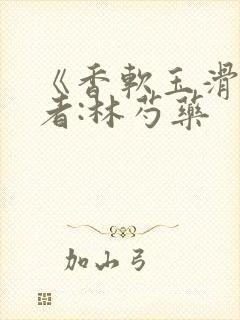 《香軟玉滑
者:林芍藥
加山弓